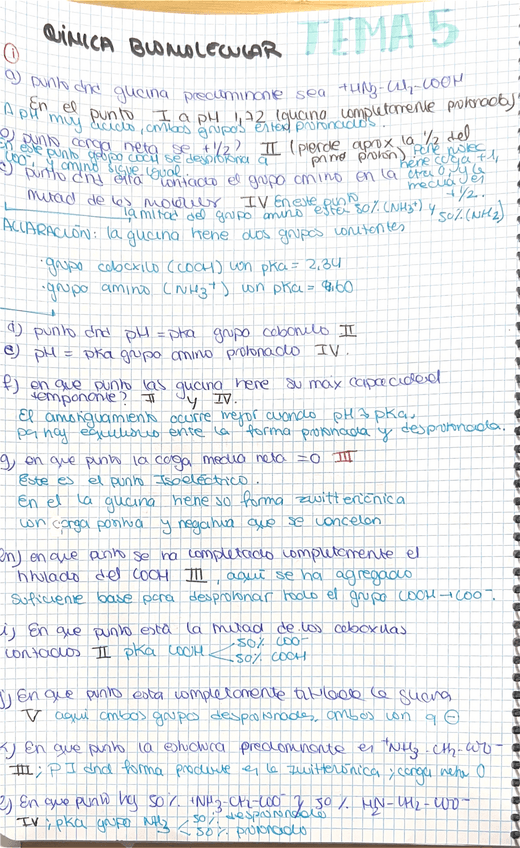 QUÍMICA BIOMOLECULAR TEMA 5
①
a) punto dnd glicina predominante sea +HN3-CH2-COOH
En el punto I a pH 1,22 (glicina completamente protonada)
A pH muy ácido, ambos grupos están protonados.
punto carga neta se +1/2? II (pierde aprox la 1/2 del primo protón)
En este punto grupo COOH se desprotona a
COO-, y amino sigue igual
punto dnd está ionizado el grupo amino en la
mitad de las moléculas IV En este punto
la mitad del grupo amino está 50% (NH3+) y 50% (NH2)
ACLARACIÓN: la glicina tiene dos grupos ionizantes
· grupo caboxilo (COOH) con pKa = 2,34
· grupo amino (NH3+) con pKa = 9,60
d) punto dnd pH = pka grupo cabonilo II
e) pH = pka grupo amino protonado IV.
f) en que punto las glicina tiene su max capacidad
tamponante? II y IV.
El amortiguamiento ocurre mejor cuando pH ≈ pKa,
pq hay equilibrio entre la forma protonada y desprotonada.
g) en que punto la carga media neta =0 III
Este es el punto Isoeléctrico.
En el la glicina tiene su forma zwitteriónica
con carga positiva y negativa que se cancelan
h) en que punto se ha completado completamente el
titulado del COOH III, aquí se ha agregado
suficiente base para desprotonar todo el grupo COOH→COO-.
i) En que punto está la mitad de los caboxilas
ionizados II pKa COOH 50% COO-
50% COOH
j) En que punto esta completamente titulada la glicina
V aquí ambos grupos desprotonados, ambos con q ⊖
k) En que punto la estructura predominante es +NH3-CH2-COO-
III; PI dnd forma produce es la zwitteriónica; carga neta 0
l) En que punto hay 50% +NH3-CH2-COO- y 50% H2N-CH2-COO-
IV; pka grupo NH3 50% desprotonado
50% protonado